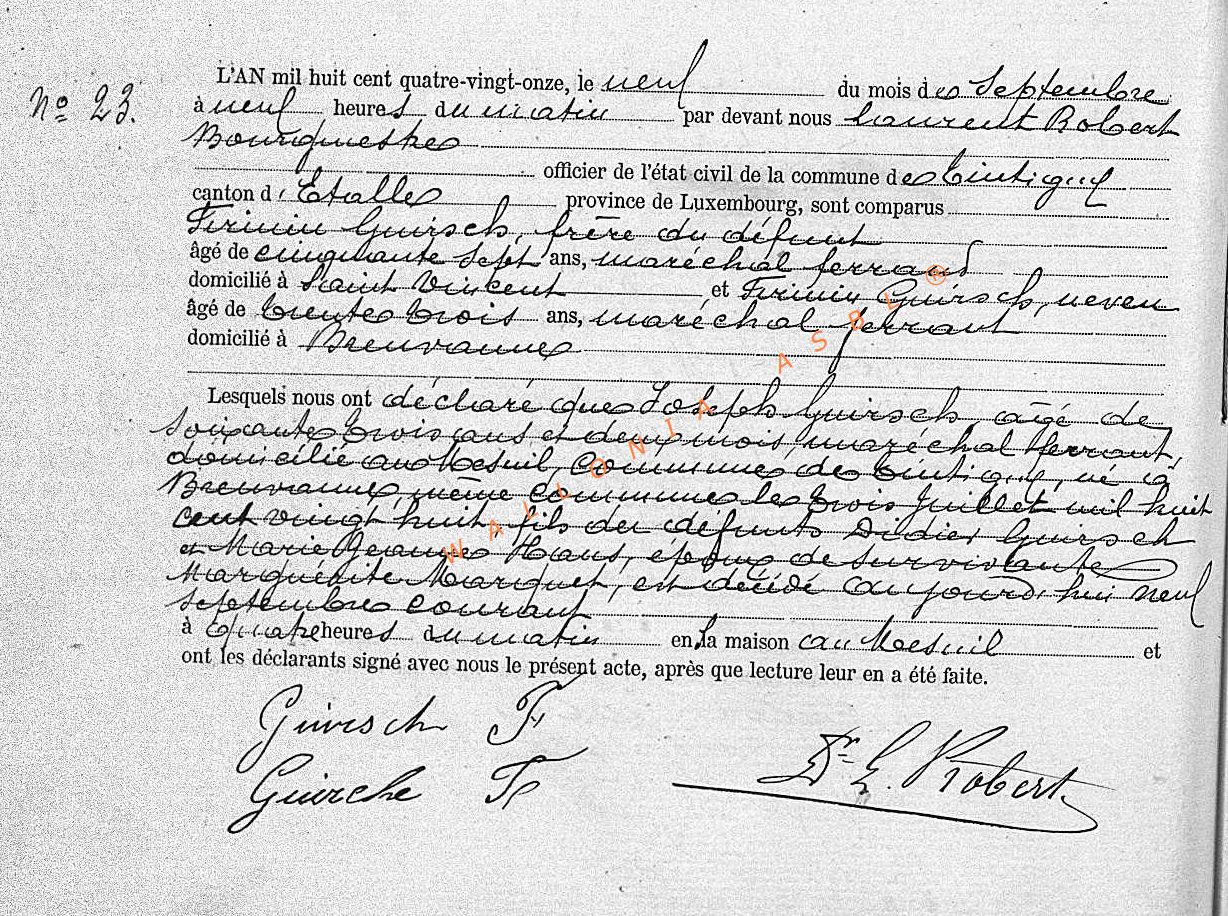 N° 23.
L'AN mil huit cent quatre-vingt-onze, le neuf du mois de Septembre
à neuf heures du matin par devant nous Laurent Robert
Bourgmestre
officier de l'état civil de la commune de Tintigny
canton d'Etalle province de Luxembourg, sont comparus
Firmin Guirsch, frère du défunt
âgé de cinquante sept ans, maréchal ferrant
domicilié à Saint Vincent et Firmin Guirsch, neveu
âgé de trente trois ans, maréchal ferrant
domicilié à Breuvanne
Lesquels nous ont déclaré que Joseph Guirsch âgé de
soixante trois ans et deux mois, maréchal ferrant,
domicilié au Mesnil, Commune de Tintigny, né à
Breuvanne, même commune le trois Juillet mil huit
cent vingt huit, fils des défunts Didier Guirsch
et Marie Jeanne Haus, époux de survivante
Marguérite Marquet, est décédé aujourd'hui neuf
septembre courant
à quatre heures du matin en la maison au Mesnil et
ont les déclarants signé avec nous le présent acte, après que lecture leur en a été faite.
Guirsch F
Guirche F
Dr L. Robert
WALLONIA ASBL ®